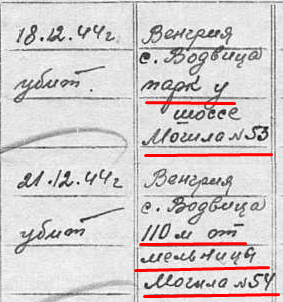 18.12.44г Венгрия
с. Водвица
убит. парк у
шоссе
Могила №53
21.12.44г Венгрия
с. Водвица
убит 110 м от
мельница
Могила №54